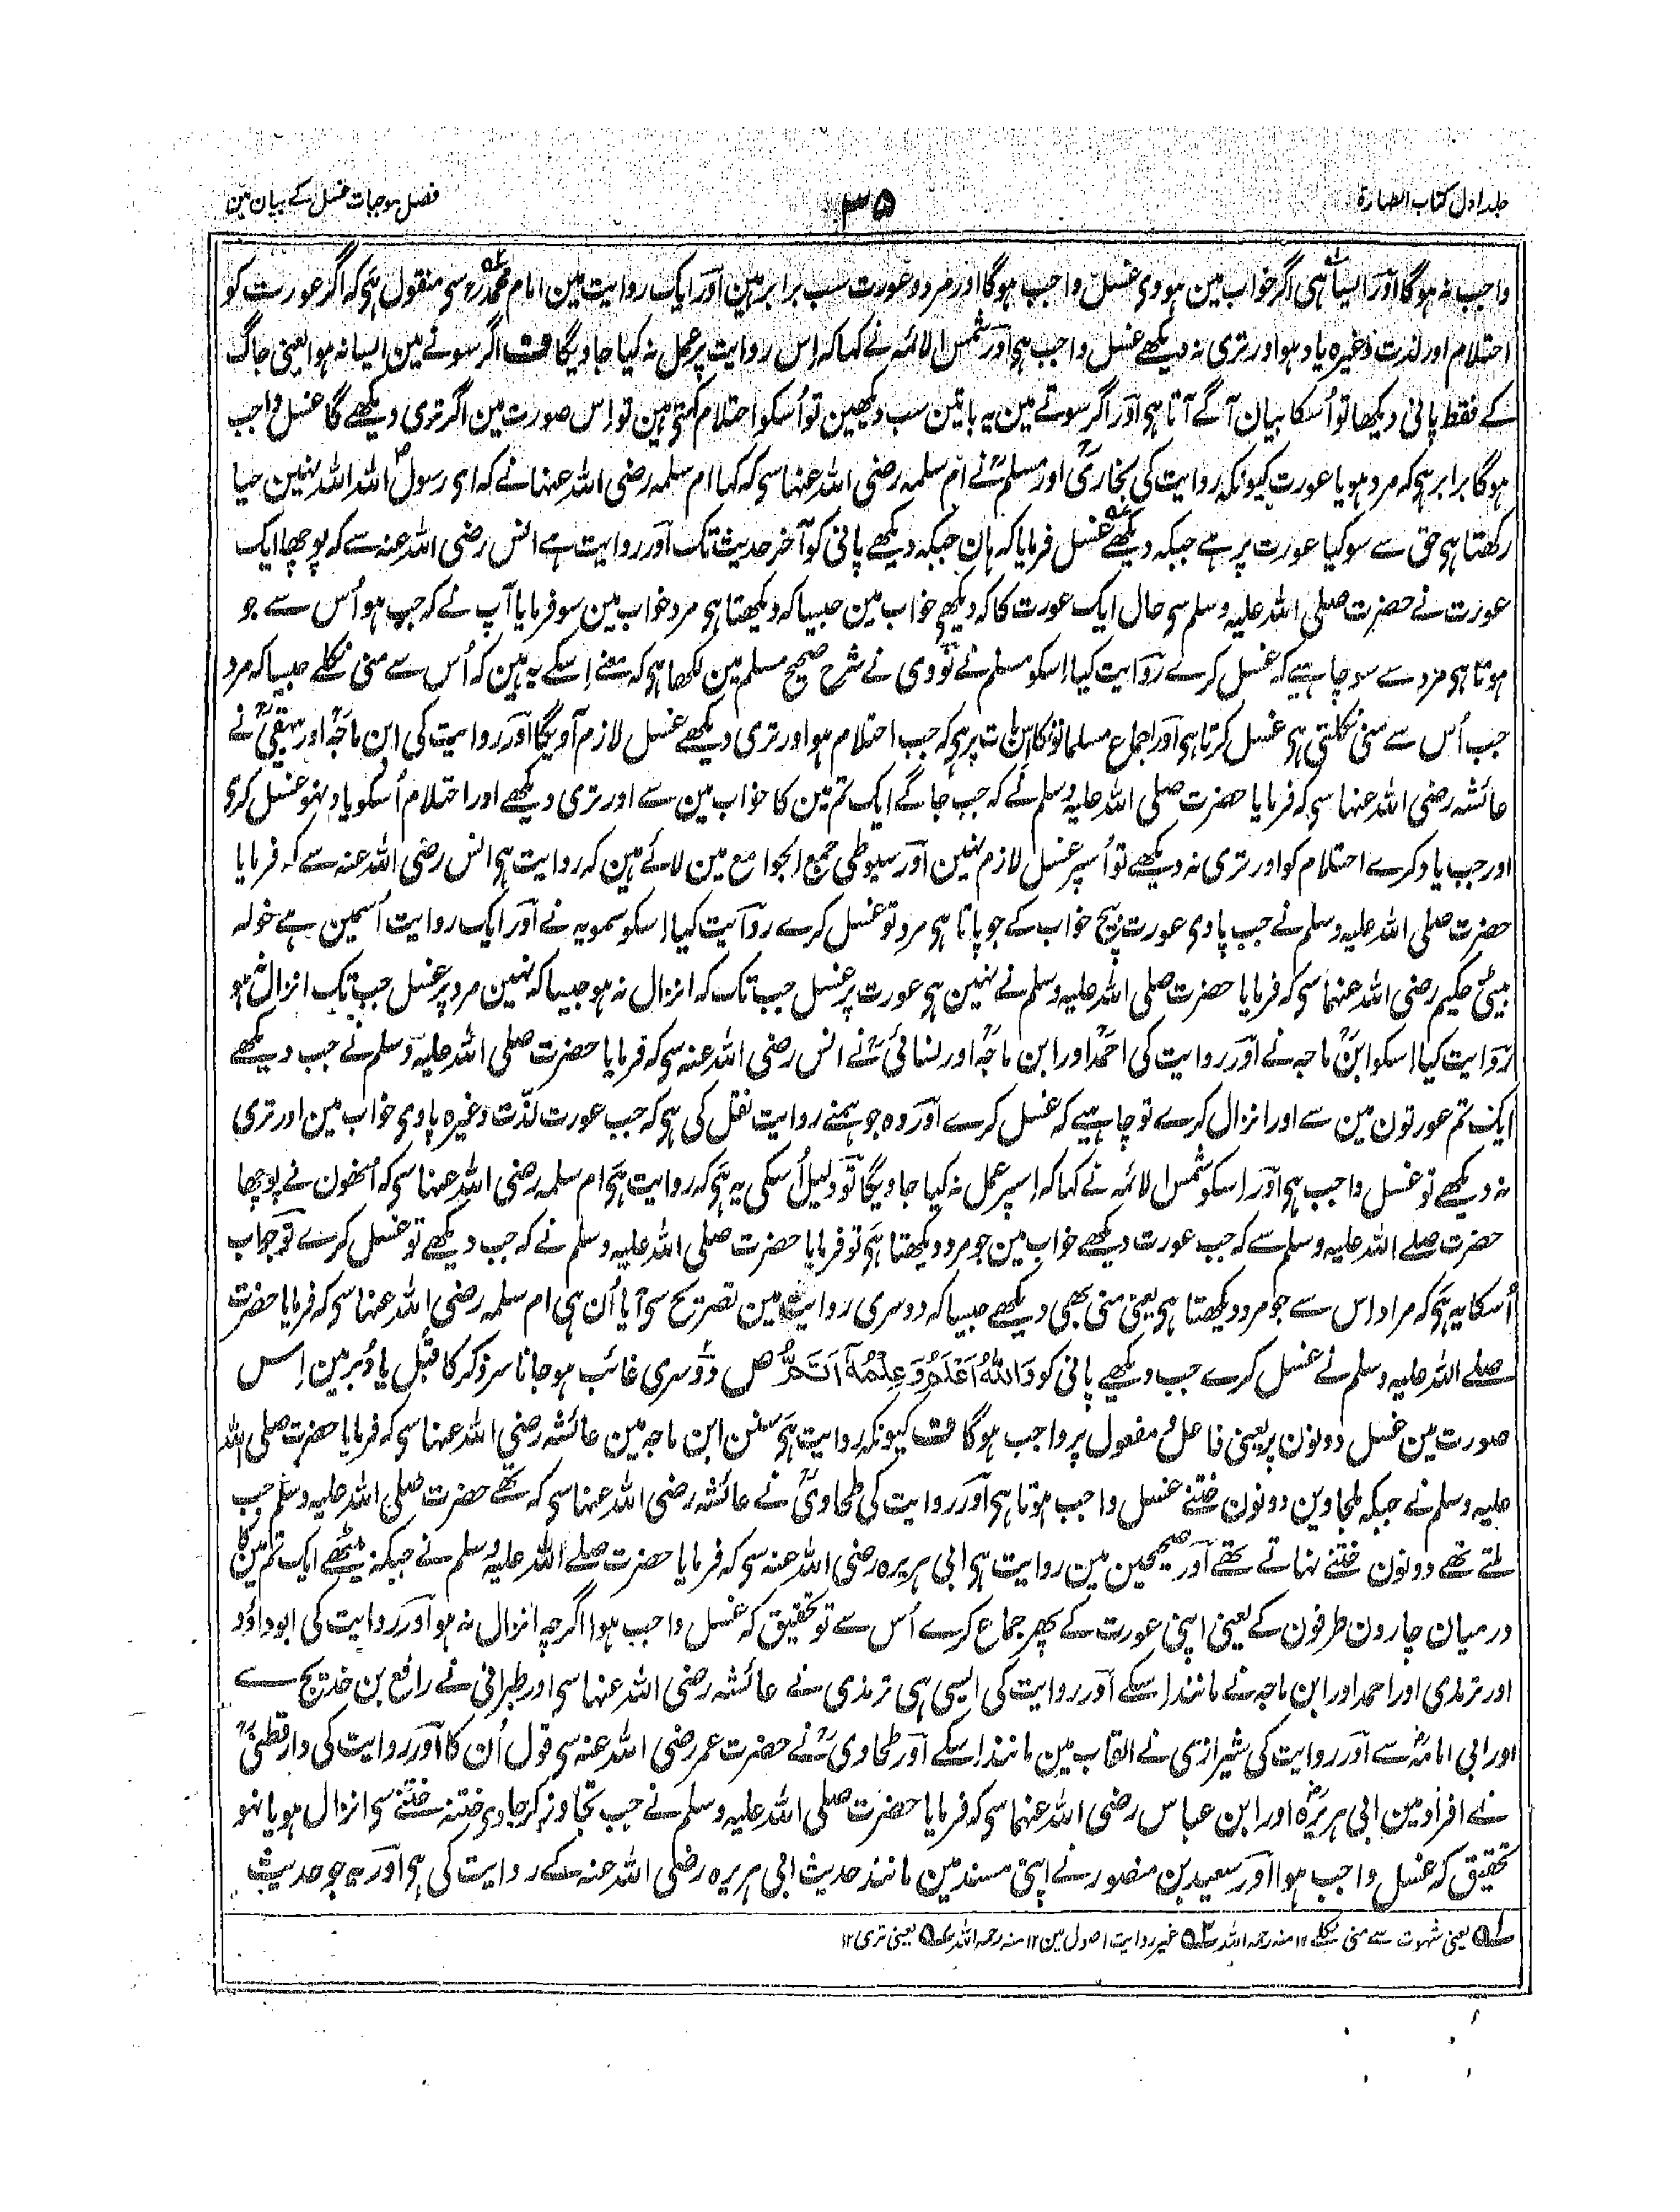 جلد اول کتاب الطہارۃ
۳۵
فصل موجبات غسل کے بیان مین
واجب نہ ہوگا اور ایسا ہی اگر خواب مین ہووی غسل واجب ہوگا اور مرد و عورت سب برابر ہین اور ایک روایت مین امام محمدؒ سی منقول ہی کہ اگر عورت کو
احتلام اور لذت وغیرہ یاد ہو اور تری نہ دیکھے غسل واجب ہی اور شمس الائمہ نے کہا کہ اِس روایت پر عمل نہ کیا جاویگا ف اگر سونے مین ایسا نہ ہو یعنی جاگ
کے فقط پانی دیکھا تو اُسکا بیان آگے آتا ہی اور اگر سوتے مین یہ باتین سب دیکھین تو اُسکو احتلام کہتی ہین تو اِس صورت مین اگر تری دیکھے گا غسل واجب
ہوگا برابر ہی کہ مرد ہو یا عورت کیونکہ روایت کی بخاریؒ اور مسلمؒ نے ام سلمہ رضی اللہ عنہا سی کہ کہا ام سلمہ رضی اللہ عنہا نے کہ ای رسولؐ اللہ اللہ نہین حیا
رکھتا ہی حق سے سو کیا عورت پر ہے جبکہ دیکھے غسل فرمایا کہ ہان جبکہ دیکھے پانی کو آخر حدیث تک اور روایت ہے انس رضی اللہ عنہ سے کہ پوچھا ایک
عورت نے حضرت صلی اللہ علیہ وسلم سی حال ایک عورت کا کہ دیکھی خواب مین جیسا کہ دیکھتا ہی مرد خواب مین سو فرمایا آپ نے کہ جب ہو اُس سے جو
ہوتا ہی مرد سے سو چاہیے کہ غسل کرے روایت کیا اِسکو مسلم نے نووی نے شرح صحیح مسلم مین لکھا ہی کہ معنے اِسکے یہ ہین کہ اُس سے منی نکلے جیسا کہ مرد
جب اُس سے منی نکلتی ہی غسل کرتا ہی اور اجماع مسلمانونکا اس بات پر ہی کہ جب احتلام ہو اور تری دیکھے غسل لازم آویگا اور روایت کی ابن ماجہؒ اور بیہقیؒ نے
عائشہ رضی اللہ عنہا سی کہ فرمایا حضرت صلی اللہ علیہ وسلم نے کہ جب جاگے ایک تم مین کا خواب مین سے اور تری دیکھے اور احتلام اُسکو یاد نہو غسل کری
اور جب یاد کرے احتلام کو اور تری نہ دیکھے تو اُسپر غسل لازم نہین اور سیوطی جمع الجوامع مین لائے ہین کہ روایت ہی انس رضی اللہ عنہ سے کہ فرمایا
حضرت صلی اللہ علیہ وسلم نے جب پاوی عورت بیچ خواب کے جو پاتا ہی مرد تو غسل کرے روایت کیا اِسکو سمویہ نے اور ایک روایت اُسمین ہے خولہ
بیٹی حکیم رضی اللہ عنہما سی کہ فرمایا حضرت صلی اللہ علیہ وسلم نے نہین ہی عورت پر غسل جب تک کہ انزال نہ ہو جیسا کہ نہین مرد پر غسل جب تک انزال نہ ہو
روایت کیا اِسکو ابنؒ ماجہ نے اور روایت کی احمدؒ اور ابن ماجہؒ اور نسائیؒ نے انس رضی اللہ عنہ سی کہ فرمایا حضرت صلی اللہ علیہ وسلم نے جب دیکھے
ایک تم عورتون مین سے اور انزال کرے تو چاہیے کہ غسل کرے اور وہ جو ہمنے روایت نقل کی ہی کہ جب عورت لذت وغیرہ پاوی خواب مین اور تری
نہ دیکھے تو غسل واجب ہی اور اِسکو شمس الائمہ نے کہا کہ اِسپر عمل نہ کیا جاویگا تو دلیل اُسکی یہ ہی کہ روایت ہی ام سلمہ رضی اللہ عنہا سی کہ اُنھون نے پوچھا
حضرت صلے اللہ علیہ وسلم سے کہ جب عورت دیکھے خواب مین جو مرد دیکھتا ہی تو فرمایا حضرت صلی اللہ علیہ وسلم نے کہ جب دیکھے تو غسل کرے تو جواب
اُسکا یہ ہی کہ مراد اس سے جو مرد دیکھتا ہی یعنی منی بھی دیکھے جیسا کہ دوسری روایت مین تصریح سی آیا اُن ہی ام سلمہ رضی اللہ عنہا سی کہ فرمایا حضرت
صلے اللہ علیہ وسلم نے غسل کرے جب دیکھے پانی کو وَاللّٰهُ اَعْلَمُ وَعِلْمُهٗ اَتَمُّ ص دوسری غائب ہو جانا سر ذکر کا قُبُل یا دُبر مین اِس
صورت مین غسل دونون پر یعنی فاعل و مفعول پر واجب ہوگا ف کیونکہ روایت ہی سنن ابن ماجہ مین عائشہ رضی اللہ عنہا سی کہ فرمایا حضرت صلی اللہ
علیہ وسلم نے جبکہ ملجاوین دونون ختنے غسل واجب ہوتا ہی اور روایت کی طحاویؒ نے عائشہ رضی اللہ عنہا سی کہ تھے حضرت صلی اللہ علیہ وسلم جب
ملتے تھے دونون ختنے نہاتے تھے اور صحیحین مین روایت ہی ابی ہریرہ رضی اللہ عنہ سی کہ فرمایا حضرت صلے اللہ علیہ وسلم نے جبکہ بیٹھے ایک تم مین کا
درمیان چارون طرفون کے یعنی اپنی عورت کے پھر جماع کرے اُس سے تو تحقیق کہ غسل واجب ہوا اگرچہ انزال نہ ہو اور روایت کی ابو داؤد
اور ترمذی اور احمد اور ابن ماجہ نے مانند اِسکے اور روایت کی ایسی ہی ترمذی نے عائشہ رضی اللہ عنہا سی اور طبرانی نے رافع بن خدیج سے
اور ابی امامہؓ سے اور روایت کی شیرازی نے القاب مین مانند اِسکے اور طحاویؒ نے حضرت عمر رضی اللہ عنہ سی قول اُن کا اور روایت کی دارقطنیؒ
نے افراد مین ابی ہریرہؓ اور ابن عباس رضی اللہ عنہما سی کہ فرمایا حضرت صلی اللہ علیہ وسلم نے جب تجاوز کر جاوی ختنہ ختنے سی انزال ہو یا نہو
تحقیق کہ غسل واجب ہوا اور سعید بن منصور نے اپنی مسند مین مانند حدیث ابی ہریرہ رضی اللہ عنہ کے روایت کی ہی اور یہ جو حدیث
۱ یعنی شہوت سے منی نکلے ۱۲ منہ رحمہ اللہ ۲ غیر روایت اصول مین ۱۲ منہ رحمہ اللہ ۳ یعنی تری ۱۲